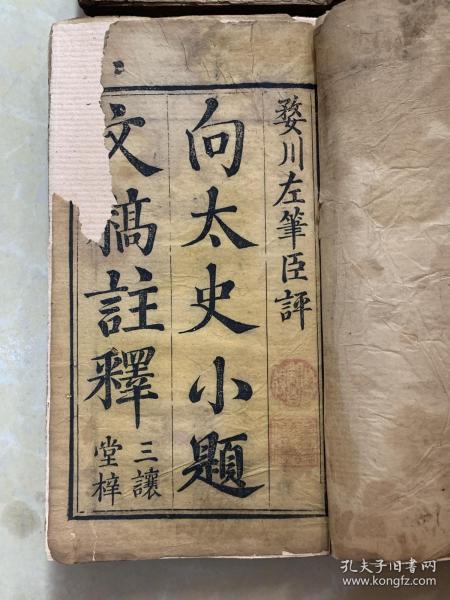 婺川左筆臣評
向太史小題
文稿註釋
三讓
堂梓
孔夫子旧书网
www.kongfz.com